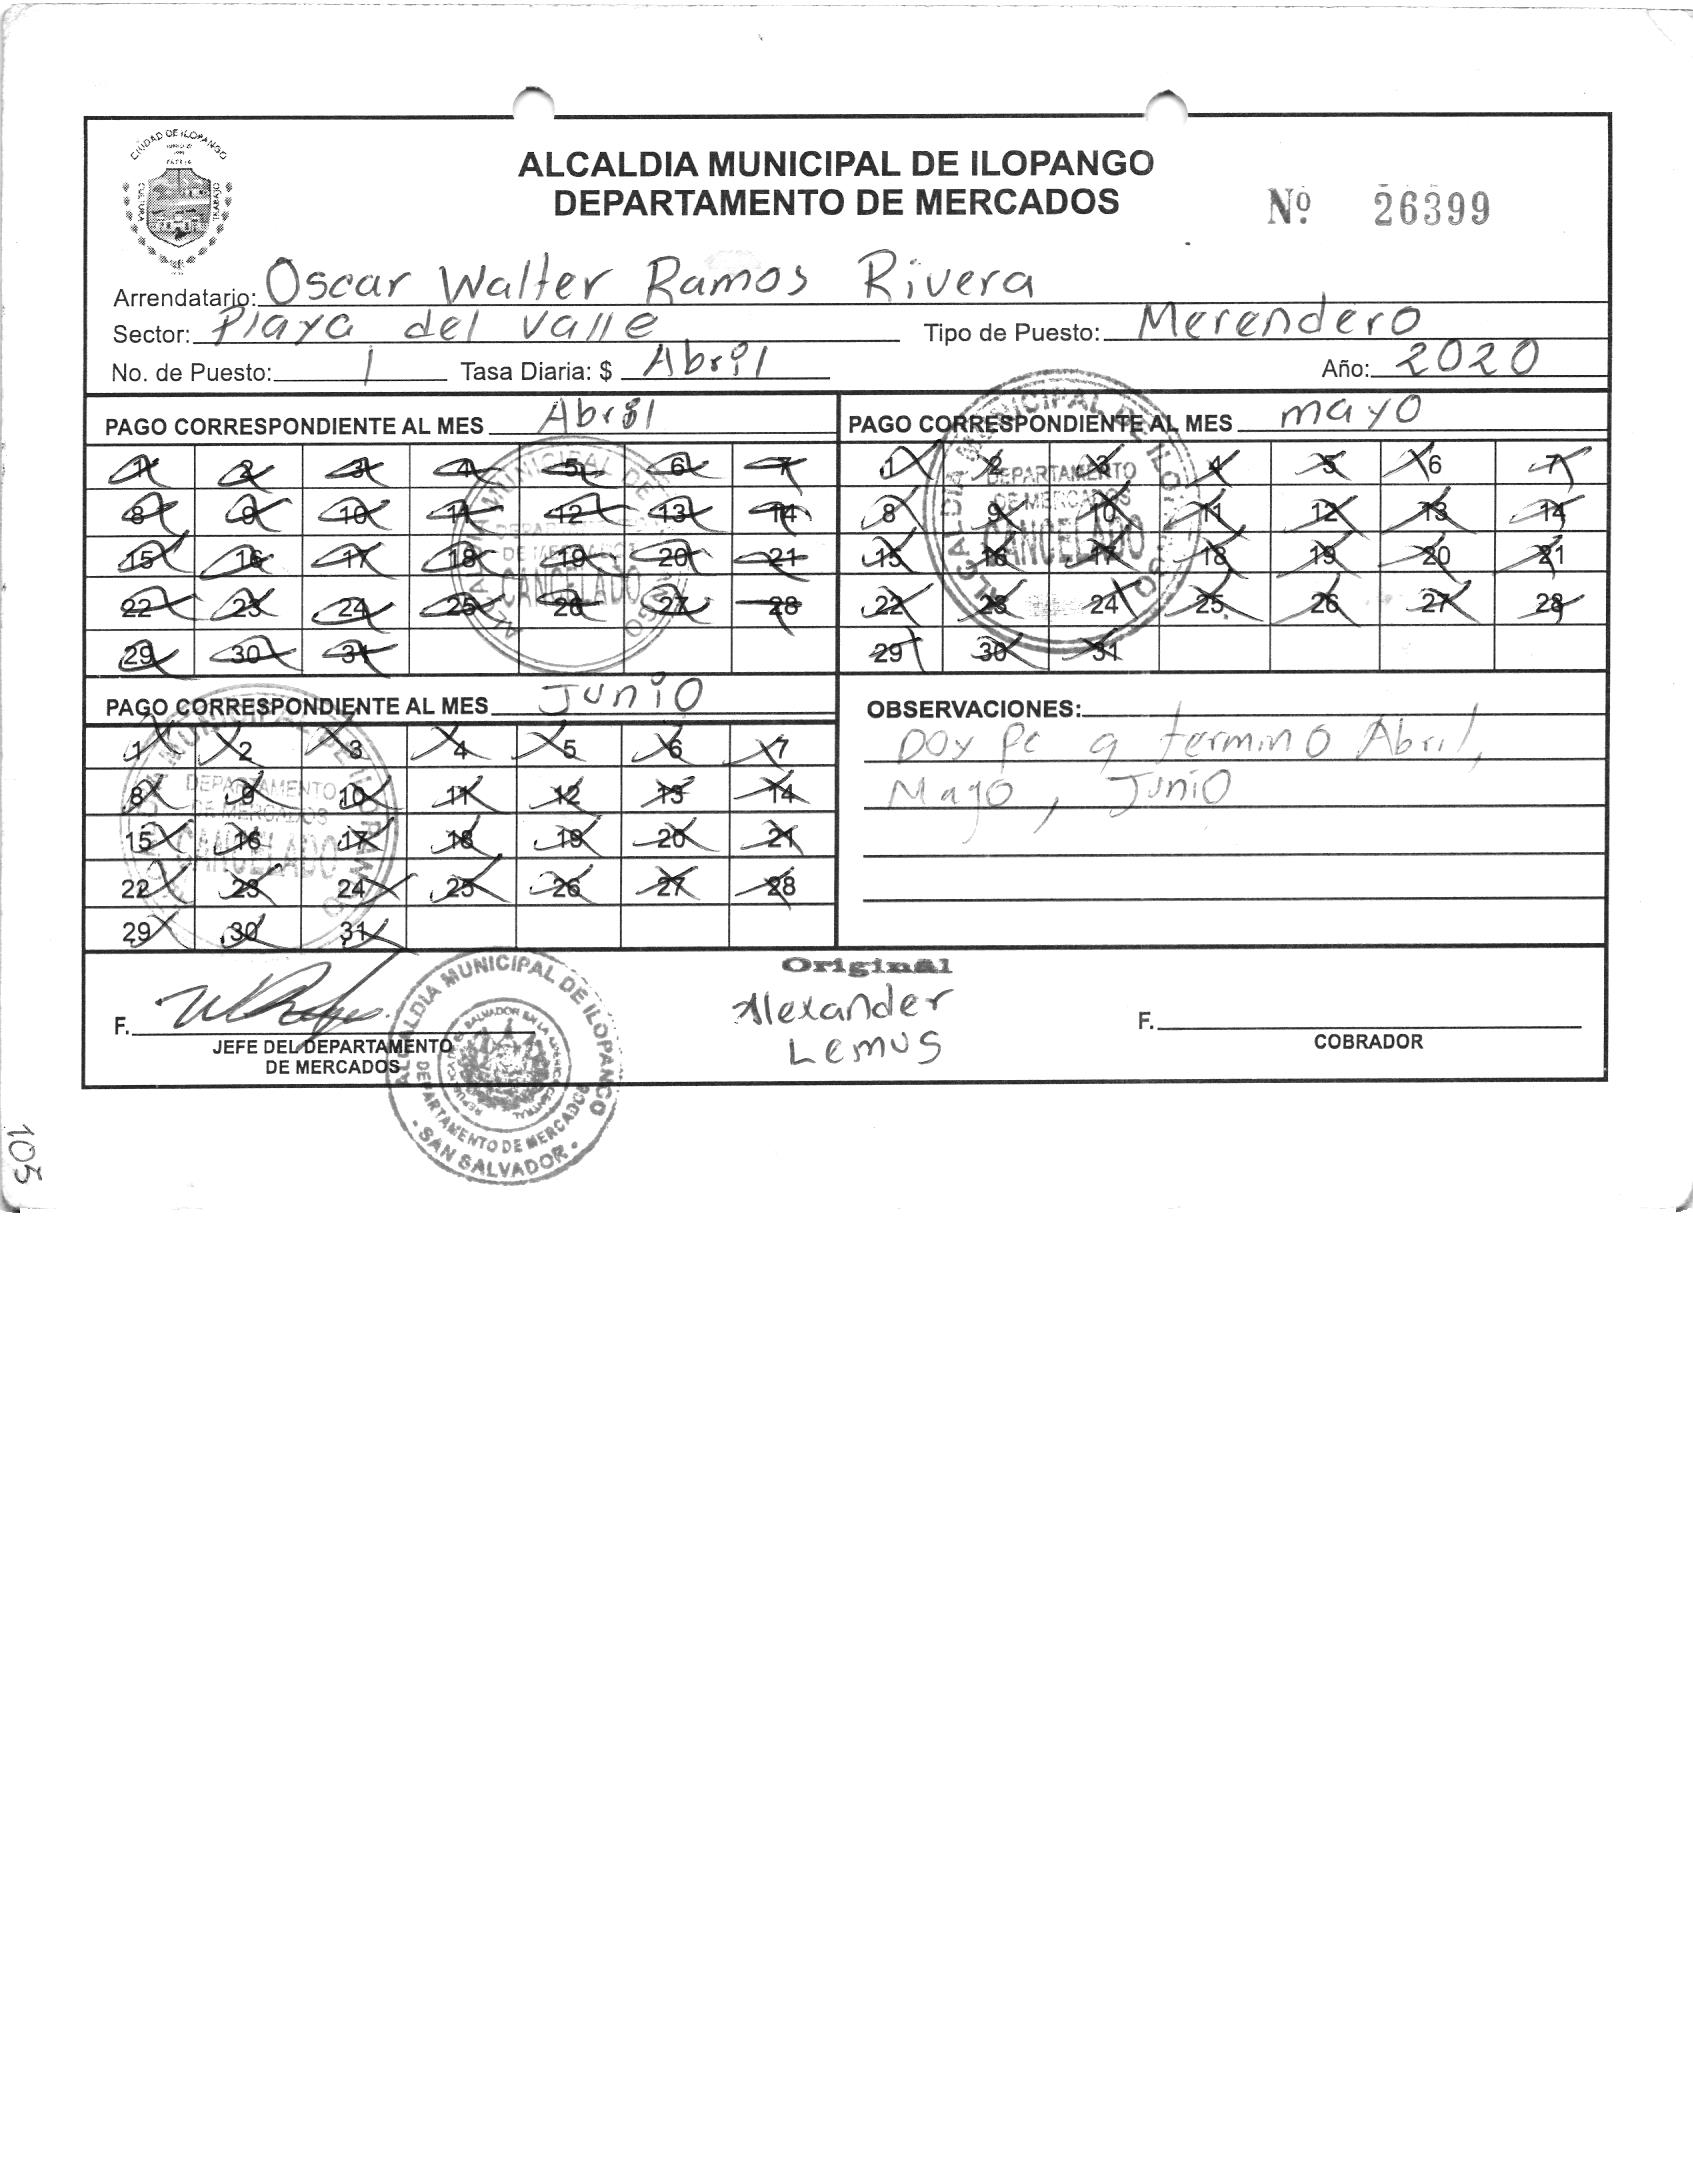 CIUDAD DE ILOPANGO
CULTURA
TRABAJO
ALCALDIA MUNICIPAL DE ILOPANGO
DEPARTAMENTO DE MERCADOS
Nº. 26399
Arrendatario: Oscar Walter Ramos Rivera
Sector: Playa del valle Tipo de Puesto: Merendero
No. de Puesto: 1 Tasa Diaria: $ Abril Año: 2020
PAGO CORRESPONDIENTE AL MES Abril
1 2 3 4 5 6 7
8 9 10 11 12 13 14
15 16 17 18 19 20 21
22 23 24 25 26 27 28
29 30 31
ALCALDIA MUNICIPAL DE ILOPANGO
DEPARTAMENTO
DE MERCADOS
CANCELADO
PAGO CORRESPONDIENTE AL MES mayo
1 2 3 4 5 6 7
8 9 10 11 12 13 14
15 16 17 18 19 20 21
22 23 24 25 26 27 28
29 30 31
ALCALDIA MUNICIPAL DE ILOPANGO
DEPARTAMENTO
DE MERCADOS
CANCELADO
PAGO CORRESPONDIENTE AL MES Junio
1 2 3 4 5 6 7
8 9 10 11 12 13 14
15 16 17 18 19 20 21
22 23 24 25 26 27 28
29 30 31
ALCALDIA MUNICIPAL DE ILOPANGO
DEPARTAMENTO
DE MERCADOS
CANCELADO
OBSERVACIONES:
Doy Pc 9 termino Abril,
Mayo, Junio
Original
Alexander
Lemus
F.
JEFE DEL DEPARTAMENTO
DE MERCADOS
F.
COBRADOR
ALCALDIA MUNICIPAL DE ILOPANGO
DEPARTAMENTO DE MERCADOS
SAN SALVADOR
105